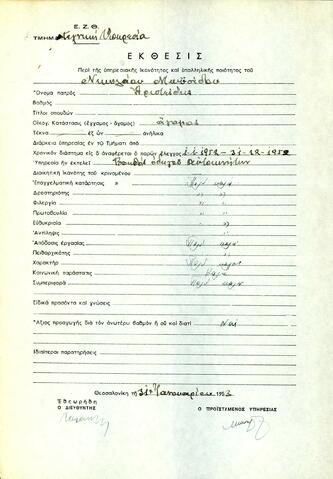 Ε.Ζ.Θ.
ΤΜΗΜΑ Τεχνική Υπηρεσία
ΕΚΘΕΣΙΣ
Περὶ τῆς ὑπηρεσιακῆς ἱκανότητος καὶ ὑπαλληλικῆς ποιότητος τοῦ
Νικολάου
Ὄνομα πατρός Ἀριστείδης
Βαθμός
Τίτλοι σπουδῶν
Οἰκογ. Κατάστασις (ἔγγαμος - ἄγαμος) ἄγαμος
Τέκνα ἐξ ὧν ἀνήλικα
Διάρκεια ὑπηρεσίας ἐν τῷ Τμήματι ἀπὸ
Χρονικὸν διάστημα εἰς ὃ ἀναφέρεται ὁ παρὼν ἔλεγχος 1-1-1952 - 31-12-1952
Ὑπηρεσία ἣν ἐκτελεῖ Βοηθὸς ὁδηγοῦ
Διοικητικὴ ἱκανότης τοῦ κρινομένου
Ἐπαγγελματικὴ κατάρτισις » Πολὺ καλὴ
Δραστηριότης » »
Φιλεργία » »
Πρωτοβουλία » »
Εὐθυκρισία » »
Ἀντίληψις » »
Ἀπόδοσις ἐργασίας Πολὺ καλὴ
Πειθαρχικότης » »
Χαρακτὴρ Πολὺ καλὸς
Κοινωνικὴ παράστασις Καλὴ
Συμπεριφορὰ Πολὺ καλὴ
Εἰδικὰ προσόντα καὶ γνώσεις
Ἄξιος προαγωγῆς διὰ τὸν ἀνώτερον βαθμὸν ἢ οὒ καὶ διατί Ναὶ
Ἰδιαίτεραι παρατηρήσεις
Θεσσαλονίκη τῇ 31η Ἰανουαρίου 1953
Ἐθεωρήθη
Ο ΔΙΕΥΘΥΝΤΗΣ Ο ΠΡΟΪΣΤΑΜΕΝΟΣ ΥΠΗΡΕΣΙΑΣ